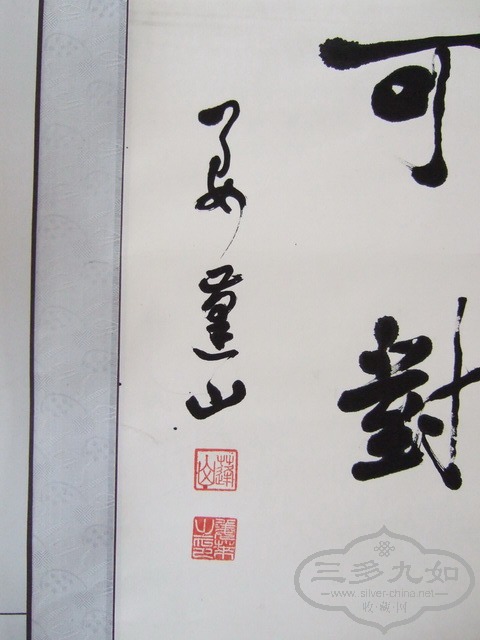 可對
蓬山
蓬山
三多九如
www.silver-china.net
收藏网